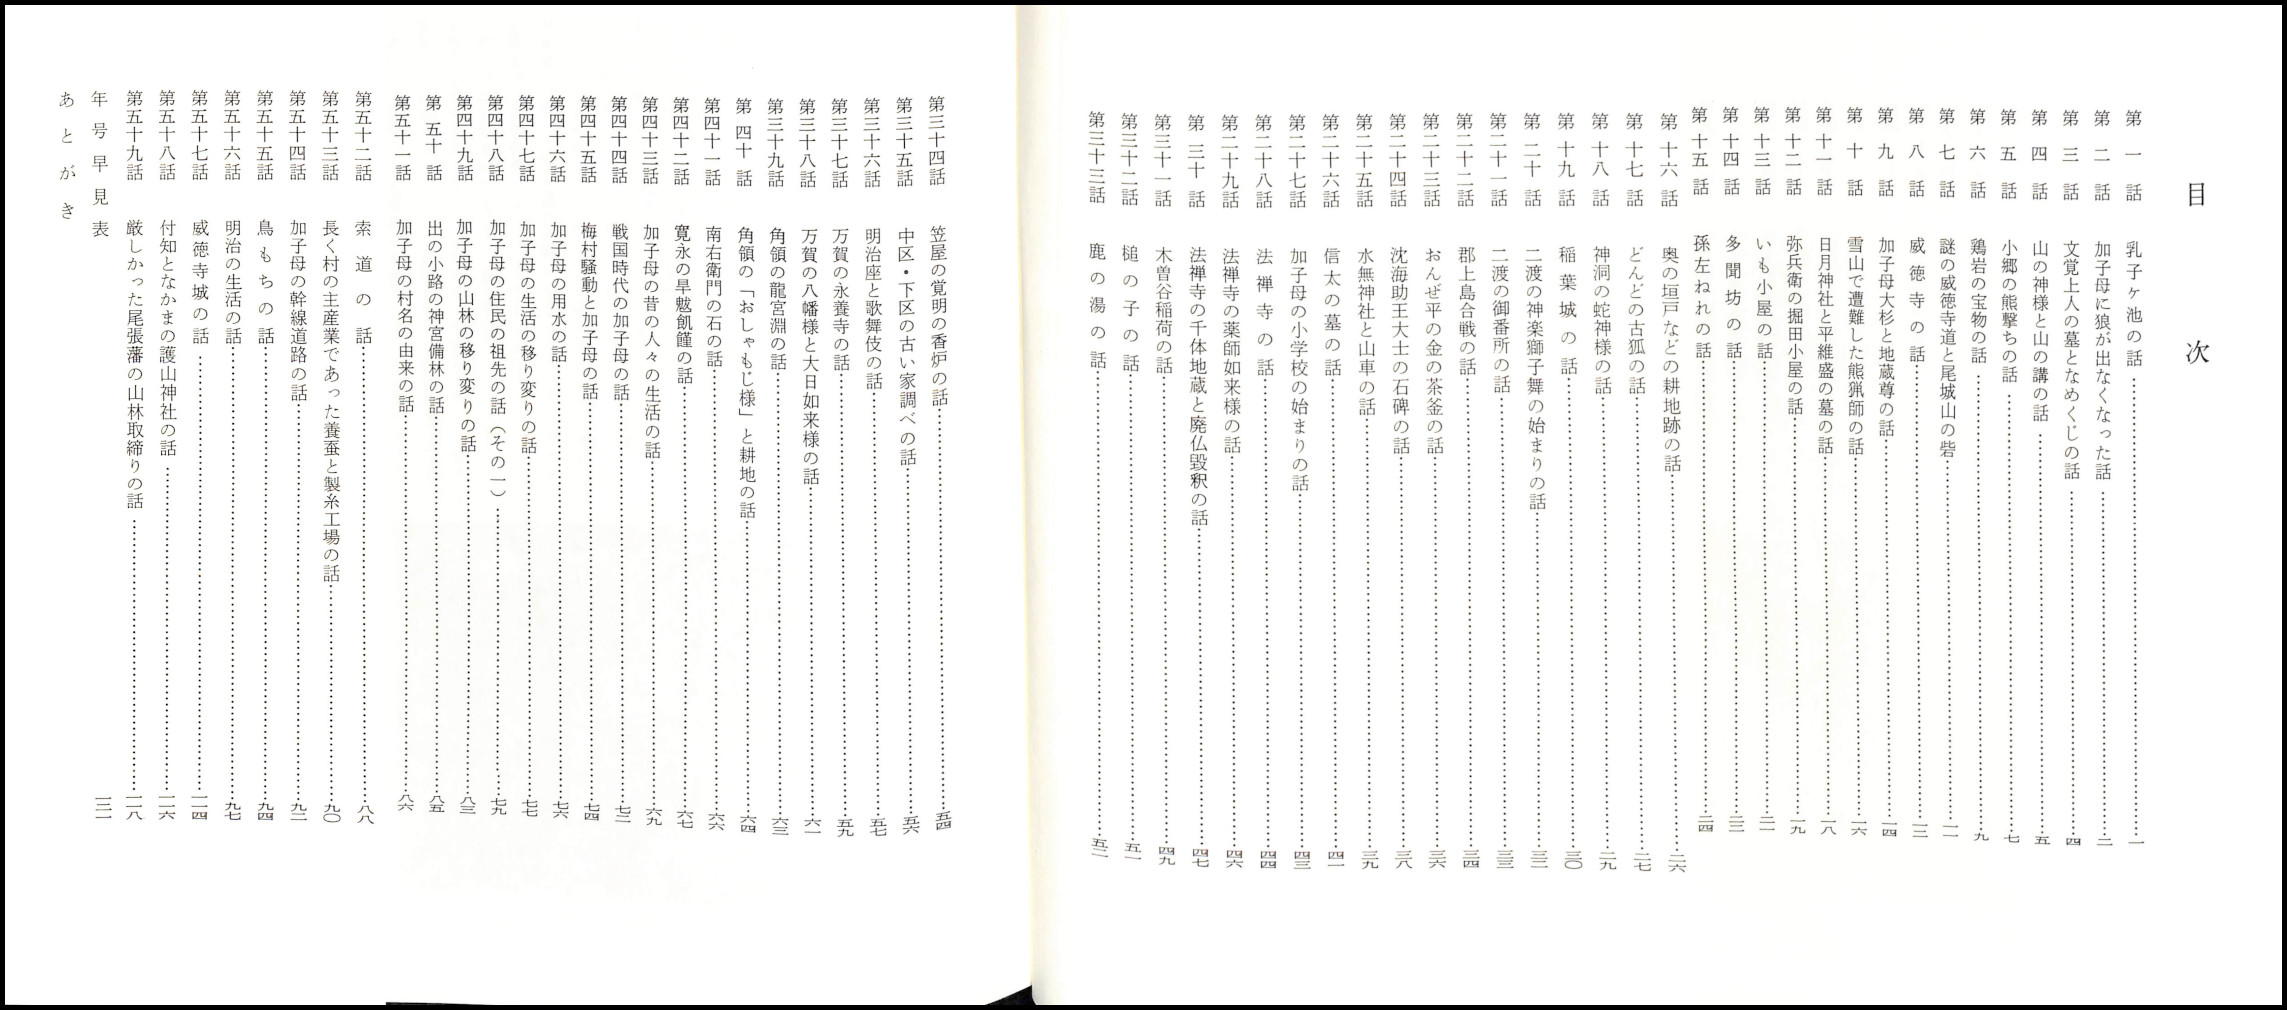 目次
第一話 乳子ヶ池の話……一
第二話 加子母に狼が出なくなった話……二
第三話 文覚上人の墓となめくじの話……四
第四話 山の神様と山の講の話……五
第五話 小郷の熊撃ちの話……七
第六話 鶏岩の宝物の話……九
第七話 謎の威徳寺道と尾城山の砦……一一
第八話 威徳寺の話……一二
第九話 加子母大杉と地蔵尊の話……一四
第十話 雪山で遭難した熊猟師の話……一六
第十一話 日月神社と平維盛の墓の話……一八
第十二話 弥兵衛の掘田小屋の話……一九
第十三話 いも小屋の話……二一
第十四話 多聞坊の話……二三
第十五話 孫左ねれの話……二四
第十六話 奥の垣戸などの耕地跡の話……二六
第十七話 どんどの古狐の話……二七
第十八話 神洞の蛇神様の話……二九
第十九話 稲葉城の話……三〇
第二十話 二渡の神楽獅子舞の始まりの話……三二
第二十一話 二渡の御番所の話……三三
第二十二話 郡上島合戦の話……三四
第二十三話 おんぜ平の金の茶釜の話……三六
第二十四話 沈海助王大士の石碑の話……三八
第二十五話 水無神社と山車の話……三九
第二十六話 信太の墓の話……四一
第二十七話 加子母の小学校の始まりの話……四三
第二十八話 法禅寺の話……四四
第二十九話 法禅寺の薬師如来様の話……四六
第三十話 法禅寺の千体地蔵と廃仏毀釈の話……四七
第三十一話 木曽谷稲荷の話……四九
第三十二話 槌の子の話……五一
第三十三話 鹿の湯の話……五二
第三十四話 笠屋の覚明の香炉の話……五四
第三十五話 中区・下区の古い家調べの話……五六
第三十六話 明治座と歌舞伎の話……五七
第三十七話 万賀の永養寺の話……五九
第三十八話 万賀の八幡様と大日如来様の話……六一
第三十九話 角領の龍宮淵の話……六三
第四十話 角領の「おしゃもじ様」と耕地の話……六四
第四十一話 南右衛門の石の話……六六
第四十二話 寛永の旱魃飢饉の話……六七
第四十三話 加子母の昔の人々の生活の話……六九
第四十四話 戦国時代の加子母の話……七二
第四十五話 梅村騒動と加子母の話……七四
第四十六話 加子母の用水の話……七六
第四十七話 加子母の生活の移り変りの話……七七
第四十八話 加子母の住民の祖先の話（その一）……七九
第四十九話 加子母の山林の移り変りの話……八三
第五十話 出の小路の神宮備林の話……八五
第五十一話 加子母の村名の由来の話……八六
第五十二話 索道の話……八八
第五十三話 長く村の主産業であった養蚕と製糸工場の話……九〇
第五十四話 加子母の幹線道路の話……九二
第五十五話 鳥もちの話……九四
第五十六話 明治の生活の話……九七
第五十七話 威徳寺城の話……一一四
第五十八話 付知となかまの護山神社の話……一一六
第五十九話 厳しかった尾張藩の山林取締りの話……一一八
年号早見表 一二一
あとがき